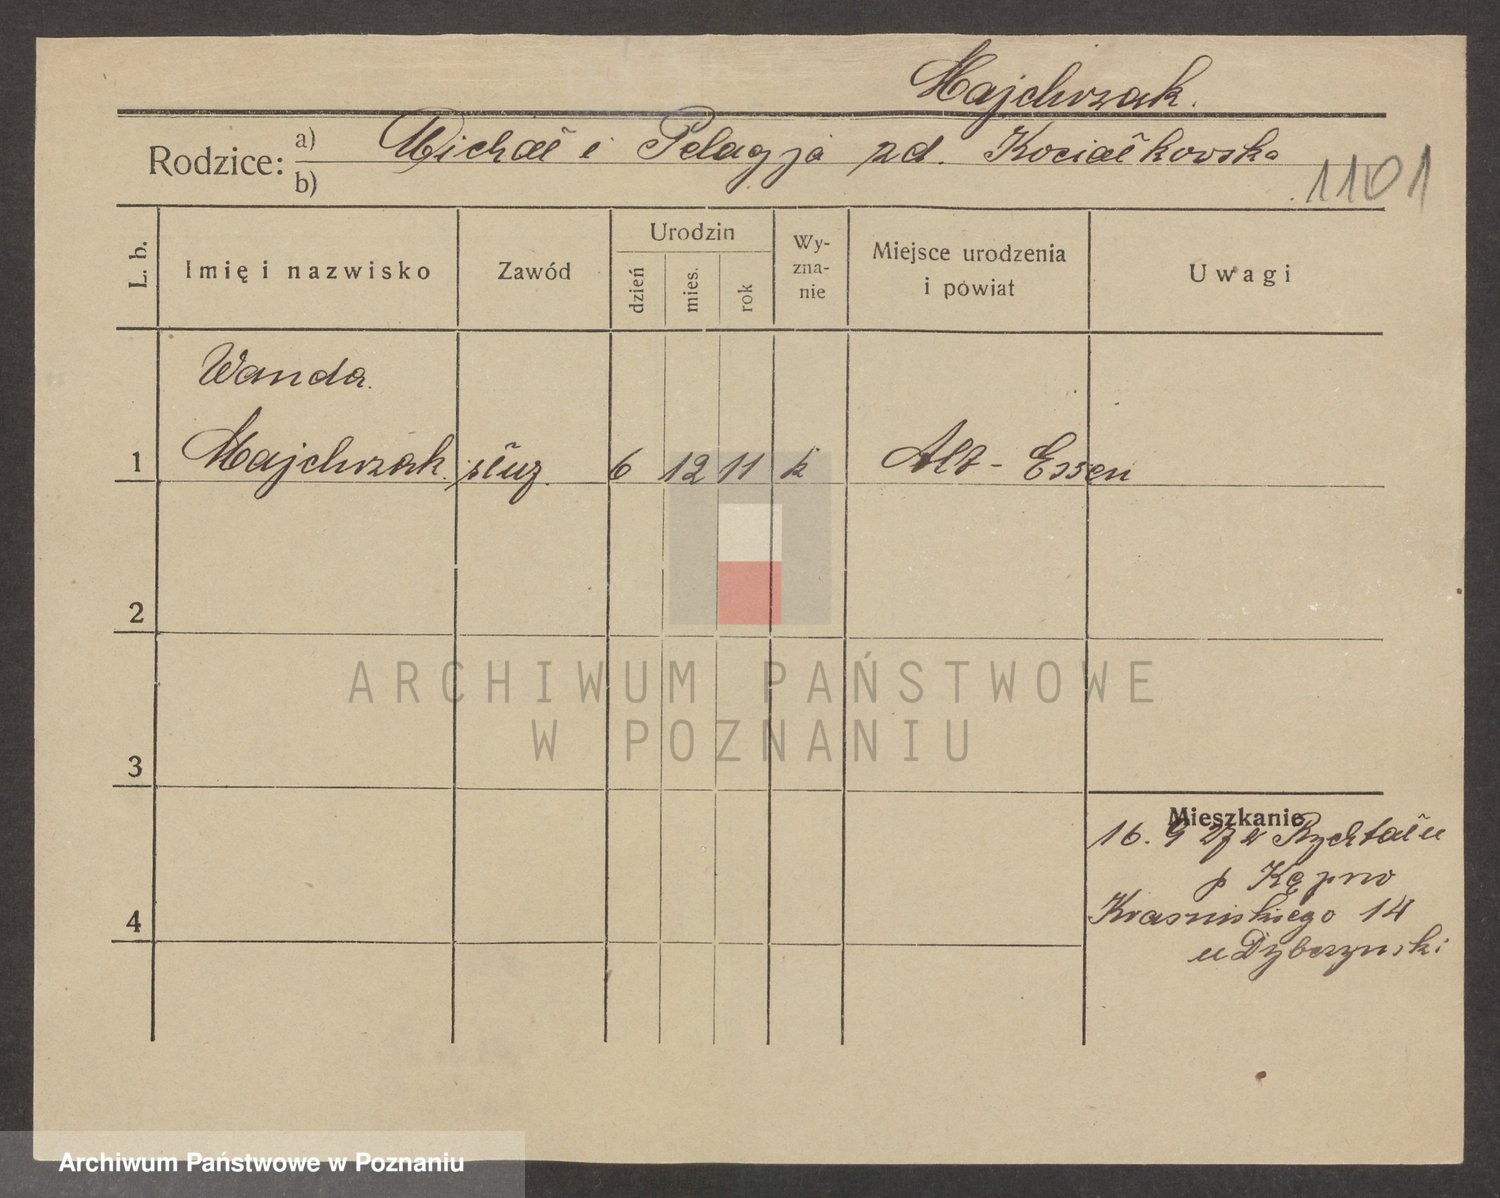 Majchrzak.
Rodzice: a) Michał i Pelagja zd. Kociałkowska
b)
1101
L. b.
Imię i nazwisko
Zawód
Urodzin
dzień
mies.
rok
Wy-
zna-
nie
Miejsce urodzenia
i powiat
Uwagi
Wanda.
1 Majchrzak. służ. 6 12 11 k Alt-Essen
2
3
4
Mieszkanie
16. 9 27 z Rychtalu
p Kępno
Krasińskiego 14
u
ARCHIWUM PAŃSTWOWE
W POZNANIU
Archiwum Państwowe w Poznaniu